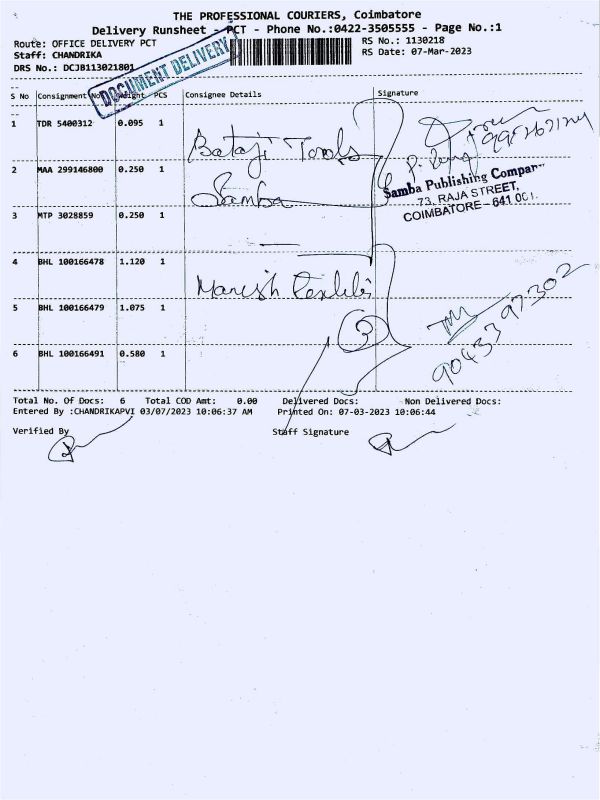 THE PROFESSIONAL COURIERS, Coimbatore
Delivery Runsheet - PCT - Phone No.:0422-3505555 - Page No.:1
Route: OFFICE DELIVERY PCT
RS No.: 1130218
Staff: CHANDRIKA
RS Date: 07-Mar-2023
DRS No.: DCJB113021801
DOCUMENT DELIVERY
S No Consignment No Weight PCS Consignee Details Signature
1 TDR 5400312 0.095 1
2 MAA 299146800 0.250 1 Samba
Samba Publishing Company
73, RAJA STREET,
COIMBATORE - 641 001.
3 MTP 3028859 0.250 1
4 BHL 100166478 1.120 1 Manish
5 BHL 100166479 1.075 1
3
9043397302
6 BHL 100166491 0.580 1
Total No. Of Docs: 6 Total COD Amt: 0.00 Delivered Docs: Non Delivered Docs:
Entered By :CHANDRIKAPVI 03/07/2023 10:06:37 AM Printed On: 07-03-2023 10:06:44
Verified By Staff Signature